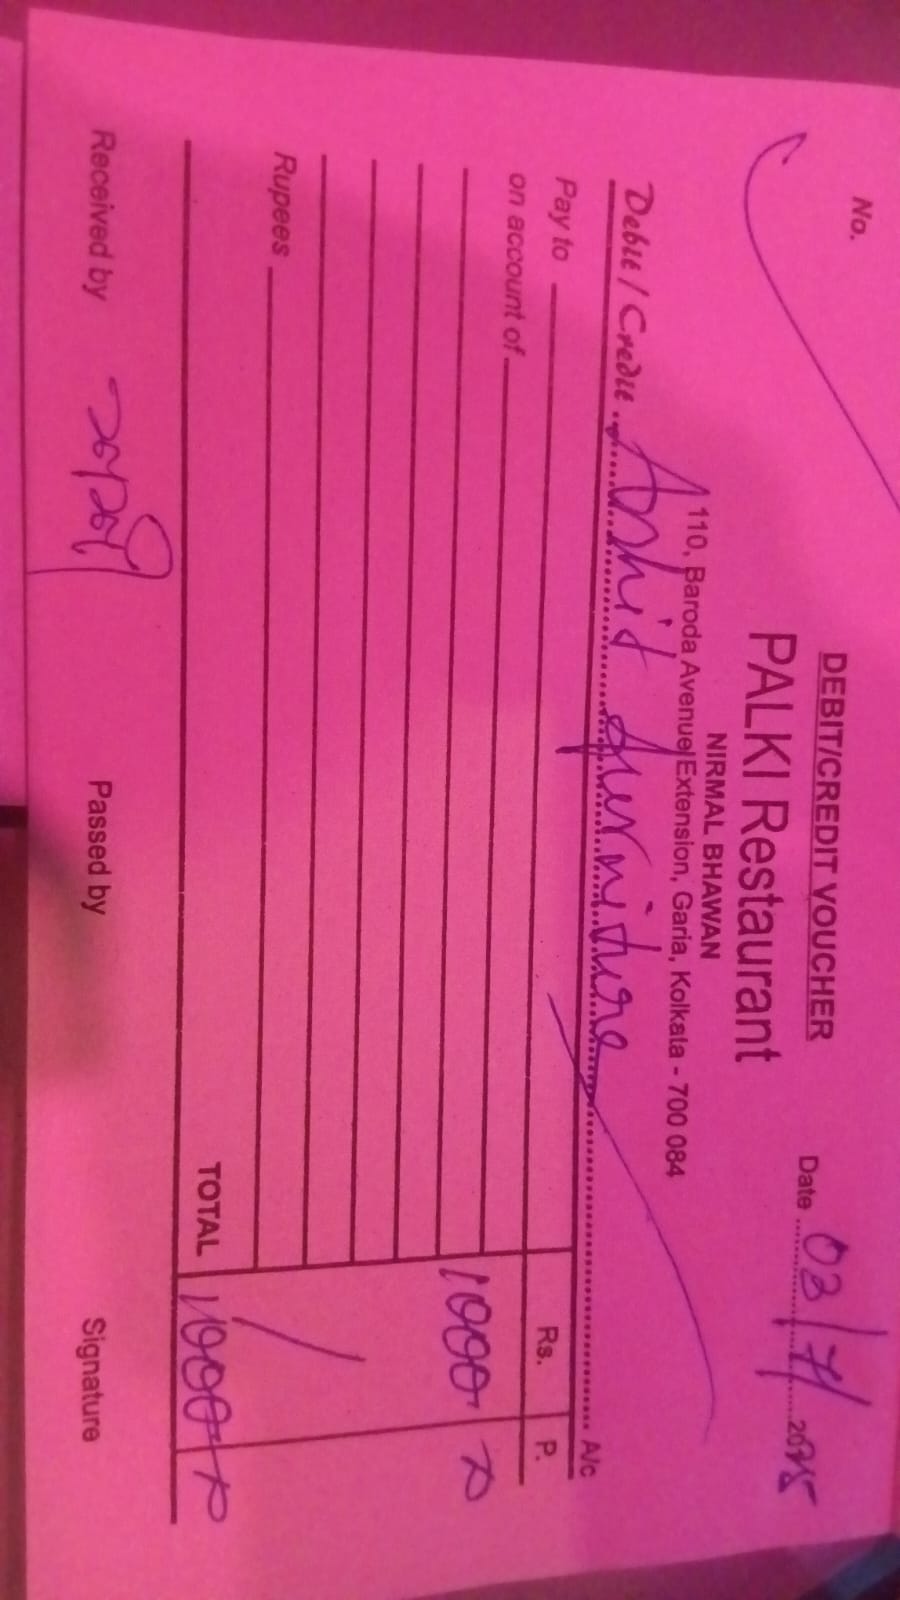 No.
DEBIT/CREDIT VOUCHER
PALKI Restaurant
Date 03/7/2025
NIRMAL BHAWAN
110, Baroda Avenue Extension, Garia, Kolkata - 700 084
Debit / Credit Ashit furniture A/c
Pay to
Rs. P.
on account of
1000
Rupees
TOTAL 1000
Received by Passed by Signature